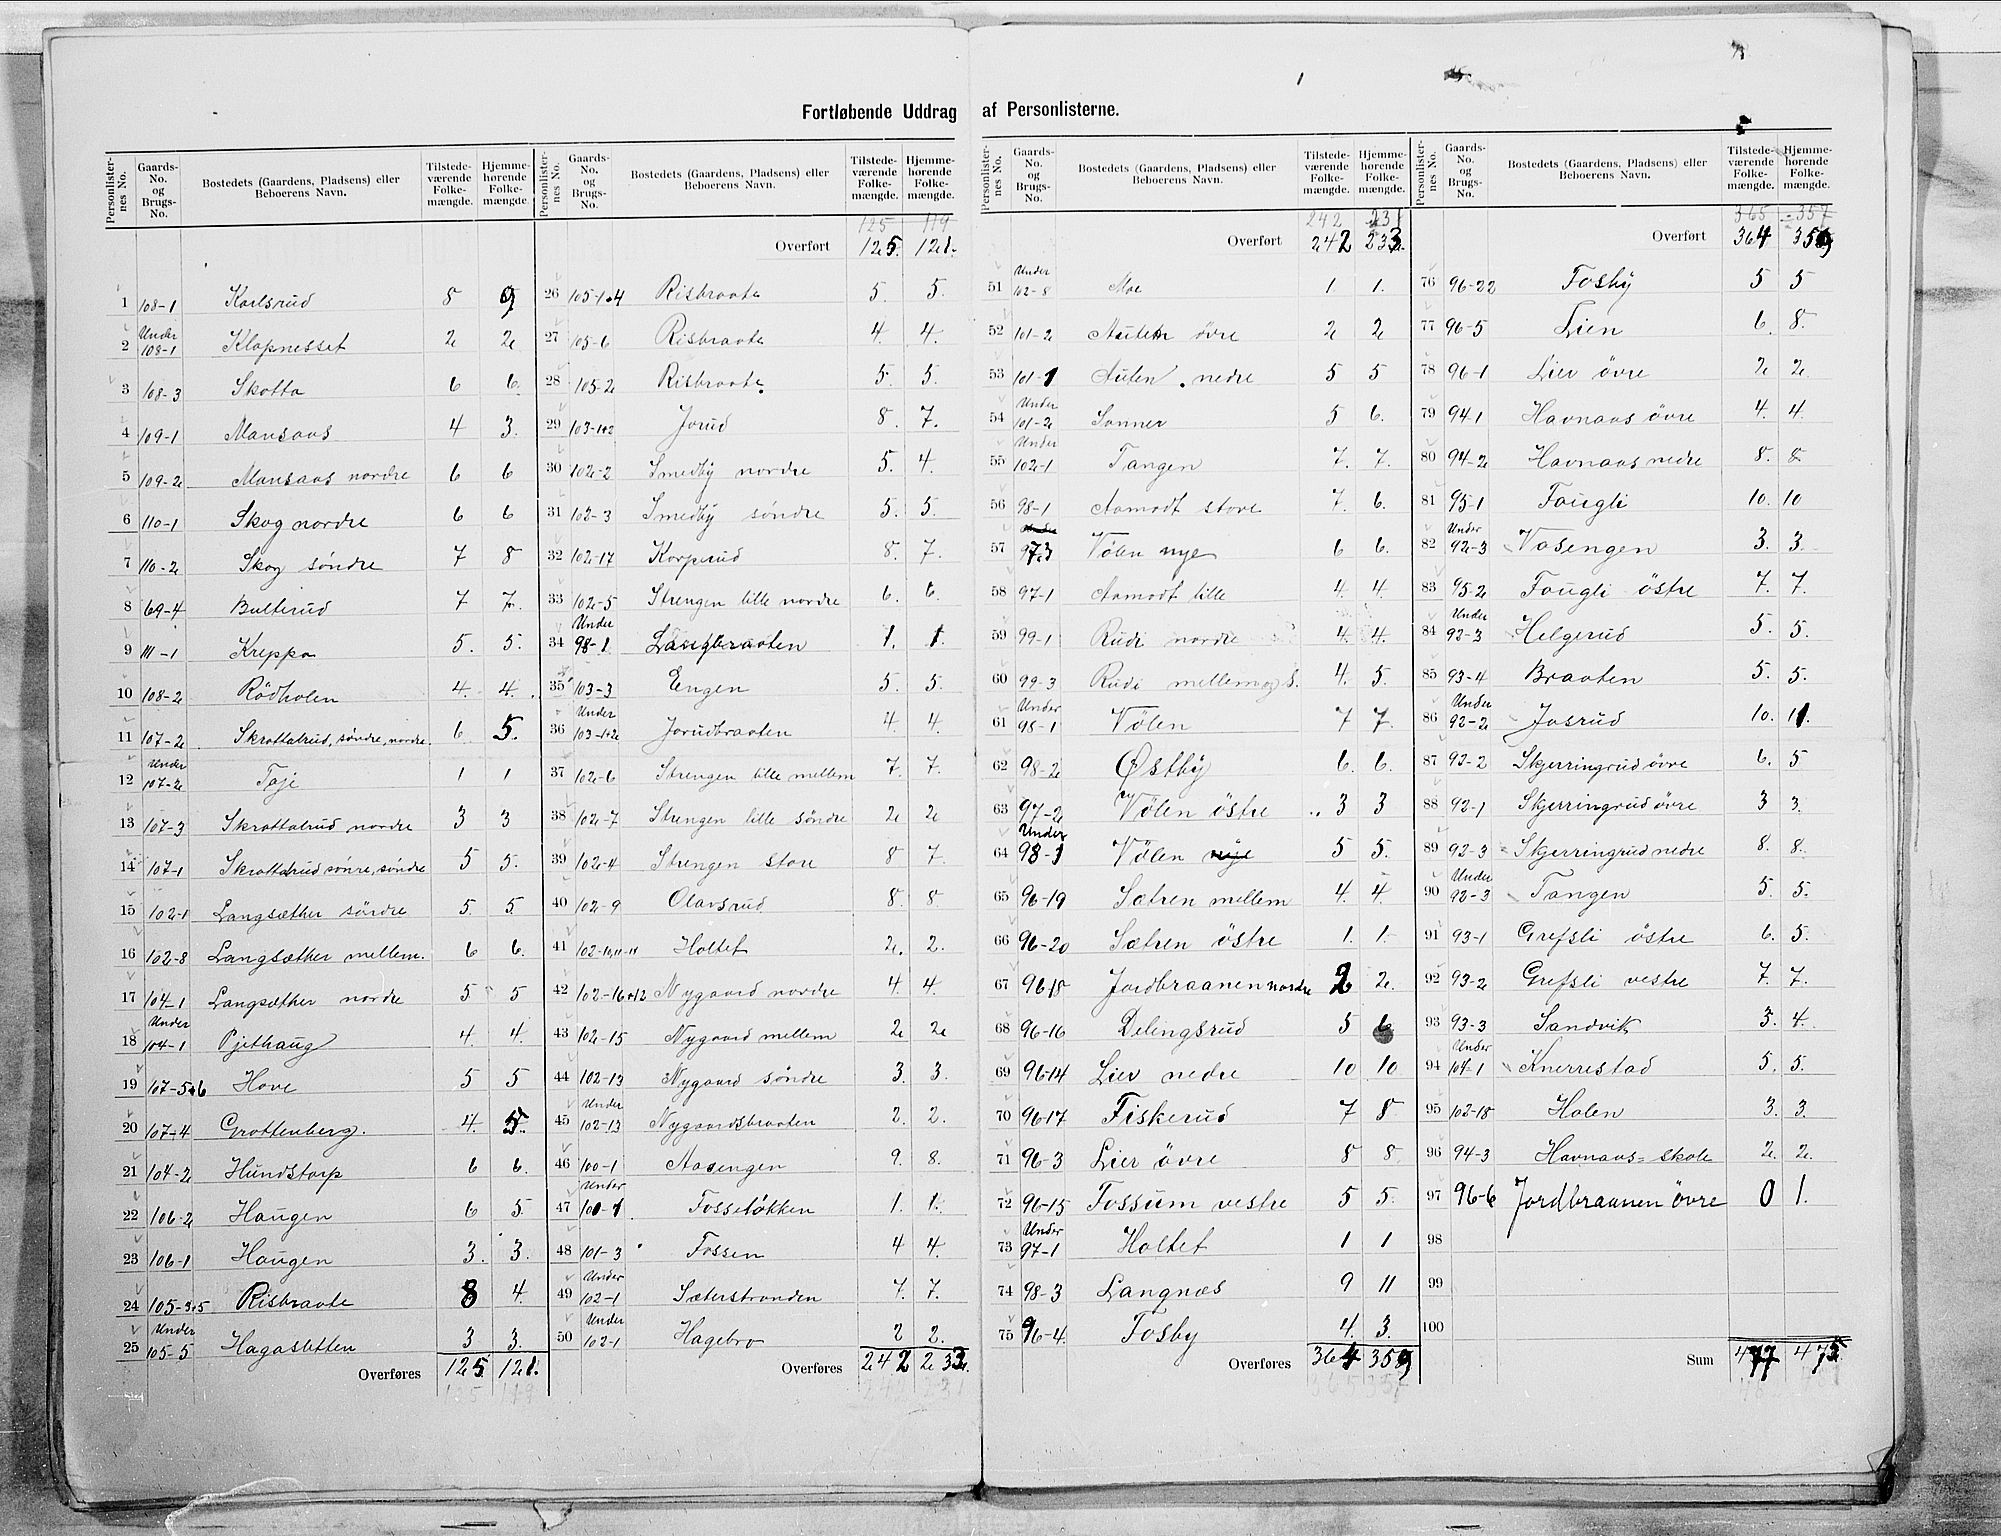 Fortløbende Uddrag af Personlisterne.
Personlister-nes No. Gaards-No. og Brugs-No. Bostedets (Gaardens, Pladsens) eller Beboerens Navn. Tilstede-værende Folke-mængde. Hjemme-hørende Folke-mængde.
1 108-1 Karlsrud 8 9
2 Under 108-1 Klopnesset 2 2
3 108-3 Skotta 6 6.
4 109-1 Mansaas 4 3.
5 109-2 Mansaas nordre 6 6
6 110-1 Skog nordre 6 6
7 110-2 Skog søndre 7 8
8 69-4 Bulterud 7 7.
9 111-1 Kreppa 5. 5.
10 108-2 Rödholen 4. 4.
11 107-2 Skrattalrud, søndre, nordre. 6. 5.
12 Under 107-2 Taje 1 1
13 107-3 Skrattalrud nordre 3 3
14 107-1 Skrattalrud sønre, søndre 5 5.
15 102-1 Langsæther söndre 5. 5.
16 102-8 Langsæther mellem. 6 6.
17 104-1 Langsæther nordre 5 5
18 Under 104-1 Pjethaug 4. 4.
19 107-5+6 Hove 5 5
20 107-4 Grottenberg. 4. 5.
21 104-2 Hundstorp 6 6.
22 106-2 Haugen 6 5.
23 106-1 Haugen 3. 3.
24 105-3+5 Risbraate 8 4.
25 Under 105-5 Hagasletten 3 3.
Overføres 125 121.
125 119
Personlister-nes No. Gaards-No. og Brugs-No. Bostedets (Gaardens, Pladsens) eller Beboerens Navn. Tilstede-værende Folke-mængde. Hjemme-hørende Folke-mængde.
125 119
Overført 125. 121.
26 105-1+4 Risbraate 5. 5.
27 105-6 Risbraate 4. 4.
28 105-2 Risbraate. 5. 5.
29 103-1+2 Jorud 8. 7.
30 102-2 Smedby nordre 5. 4.
31 102-3 Smedby søndre 5. 5.
32 102-17 Korperud 8. 7.
33 102-5 Strengen lille nordre 6. 6.
34 Under 98-1 Langbraaten 1. 1.
35 103-3 Engen 5. 5.
36 Under 103-1+2 Jorudbraaten 4 4.
37 102-6 Strengen lille mellem 7. 7.
38 102-7 Strengen lille söndre 2 2
39 102-4 Strengen store 8 7.
40 102-9 Olavsrud 8. 8.
41 102-10,11-14 Holtet 2. 2.
42 102-16+12 Nygaard nordre 4. 4.
43 102-15 Nygaard mellem 2 2
44 102-13 Nygaard söndre 3. 3.
45 Under 102-13 Nygaardsbraaten 2. 2.
46 100-1 Aasengen 9. 8.
47 Under 100-1 Fosseløkken 1. 1.
48 101-3 Fossen 4 4.
49 Under 102-1 Sæterstranden 7. 7.
50 Under 102-1 Hagebro 2 2.
Overføres 242 233
242 231
Personlister-nes No. Gaards-No. og Brugs-No. Bostedets (Gaardens, Pladsens) eller Beboerens Navn. Tilstede-værende Folke-mængde. Hjemme-hørende Folke-mængde.
242 231
Overført 242 233.
51 Under 102-8 Moe 1 1.
52 101-2 Auten övre 2 2
53 101-1 Auten nedre 5 5
54 Under 101-2 Sanner 5 6.
55 Under 102-1 Tangen 7. 7.
56 98-1 Aamodt store 7 6.
57 97.3 Vølen nye 6 6.
58 97-1 Aamodt lille 4 4.
59 99-1 Rudi nordre 4. 4.
60 99-3 Rudi mellem og S. 4. 5.
61 Under 98-1 Vølen 7 7.
62 98-2 Østby 6. 6.
63 97-2 Vølen östre 3 3
64 Under 98-1 Vølen nye 5 5.
65 96-19 Sætren mellem 4. 4.
66 96-20 Sætren östre 1. 1.
67 96 18 Jordbraanen nordre 2 2.
68 96-16 Delingsrud 5 6
69 96-14 Lier nedre 10 10
70 96-17 Fiskerud 7 8
71 96-3 Lier övre 8 8.
72 96-15 Fossum vestre 5 5.
73 Under 97-1 Holtet 1 1
74 98-3 Langnæs 9 11
75 96-4. Fosby 4. 3.
Overføres 364 359
365 357
Personlister-nes No. Gaards-No. og Brugs-No. Bostedets (Gaardens, Pladsens) eller Beboerens Navn. Tilstede-værende Folke-mængde. Hjemme-hørende Folke-mængde.
365 357
Overført 364 359
76 96-22 Fosby 5 5
77 96-5 Lien 6. 8.
78 96-1 Lier övre 2 2.
79 94-1 Havnaas övre 4. 4.
80 94-2 Havnaas nedre 8. 8.
81 95-1 Fougli 10. 10
82 Under 92-3 Vasengen 3. 3.
83 95-2 Fougli östre 7. 7.
84 Under 92-3 Helgerud 5. 5.
85 93-4 Braaten 5. 5.
86 Under 92-2 Josrud 10. 11.
87 92-2 Skjerringrud övre 6. 5
88 92-1 Skjerringrud övre 3 3.
89 92-3 Skjerringrud nedre 8. 8.
90 Under 92-3 Tangen 5. 5.
91 93-1 Grefsli östre 6. 5.
92 93-2 Grefsli vestre 7. 7.
93 93-3 Sandvik 3. 4.
94 Under 104-1 Knerrestad 5. 5.
95 102-18 Holen 3. 3.
96 94-3 Havnaas-skole 2. 2.
97 96-6 Jordbraanen övre 0 1.
98
99
100
Sum 477 475